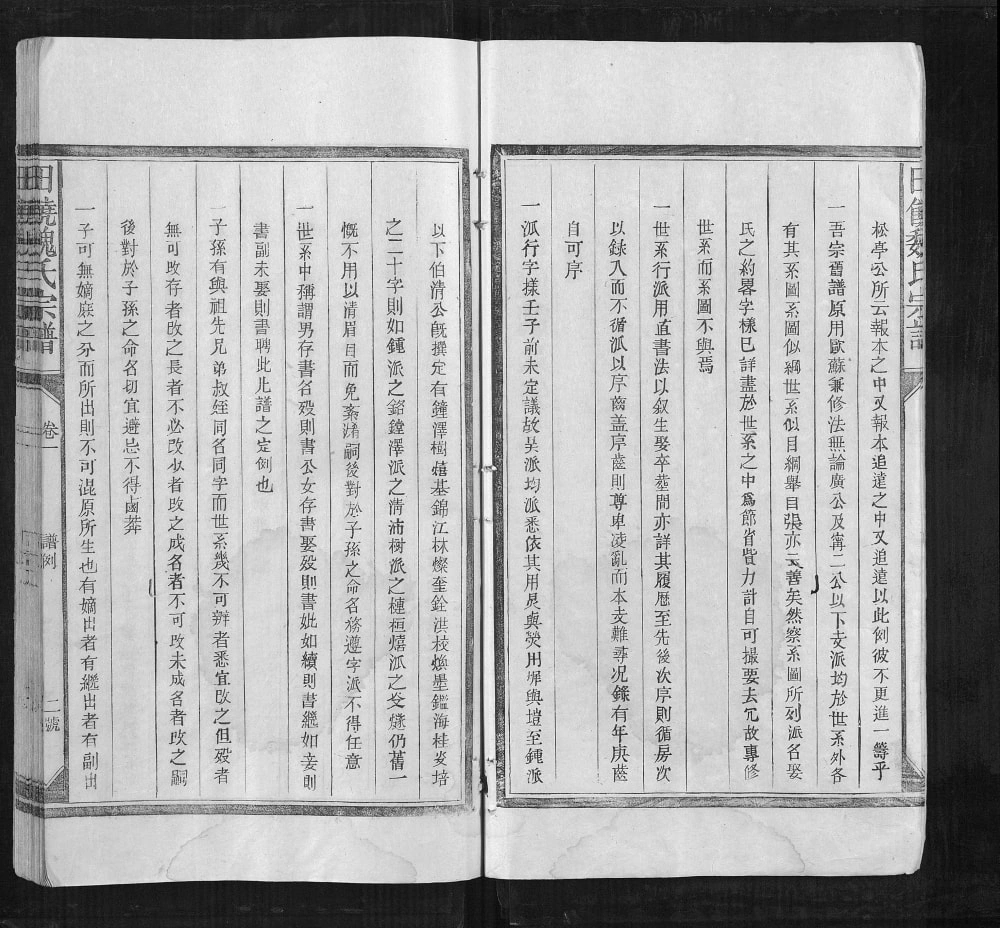 松亭公所云報本之中又報本追遠之中又追遠以此例彼不更進一籌乎
一吾宗舊譜原用歐蘇兼修法無論廣公及甯二公以下支派均於世系外各
有其系圖系圖似綱世系似目綱舉目張亦云善矣然察系圖所列派名娶
氏之約畧字樣已詳盡於世系之中爲節省貲力計自可撮要去冗故專修
世系而系圖不與焉
一世系行派用直書法以叙生娶卒塟間亦詳其履歷至先後次序則循房次
以錄入而不循派以序齒盖序齒則尊卑凌亂而本支難尋况錄有年庚齒
自可序
一派行字樣壬子前未定議故吴派均派悉依其用炅與熒用墀與塏至鍾派
以下伯清公旣撰定有鐘澤樹熺基錦江林燦奎銓洪棱煥墨鑑海桂炎培
之二十字則如鍾派之鉻鏜澤派之清浦樹派之槤桓熺派之炆燧仍舊一
慨不用以清眉目而免紊淆嗣後對於子孫之命名務遵字派不得任意
一世系中稱謂男存書名殁則書公女存書娶殁則書妣如續則書繼如妾則
書副未娶則書聘此北譜之定例也
一子孫有與祖先兄弟叔姪同名同字而世系幾不可辨者悉宜改之但殁者
無可改存者改之長者不必改少者改之成名者不可改未成名者改之嗣
後對於子孫之命名切宜避忌不得鹵莽
一子可無嫡庶之分而所出則不可混原所生也有嫡出者有繼出者有副出
田饒魏氏宗譜
卷一
譜例
二號